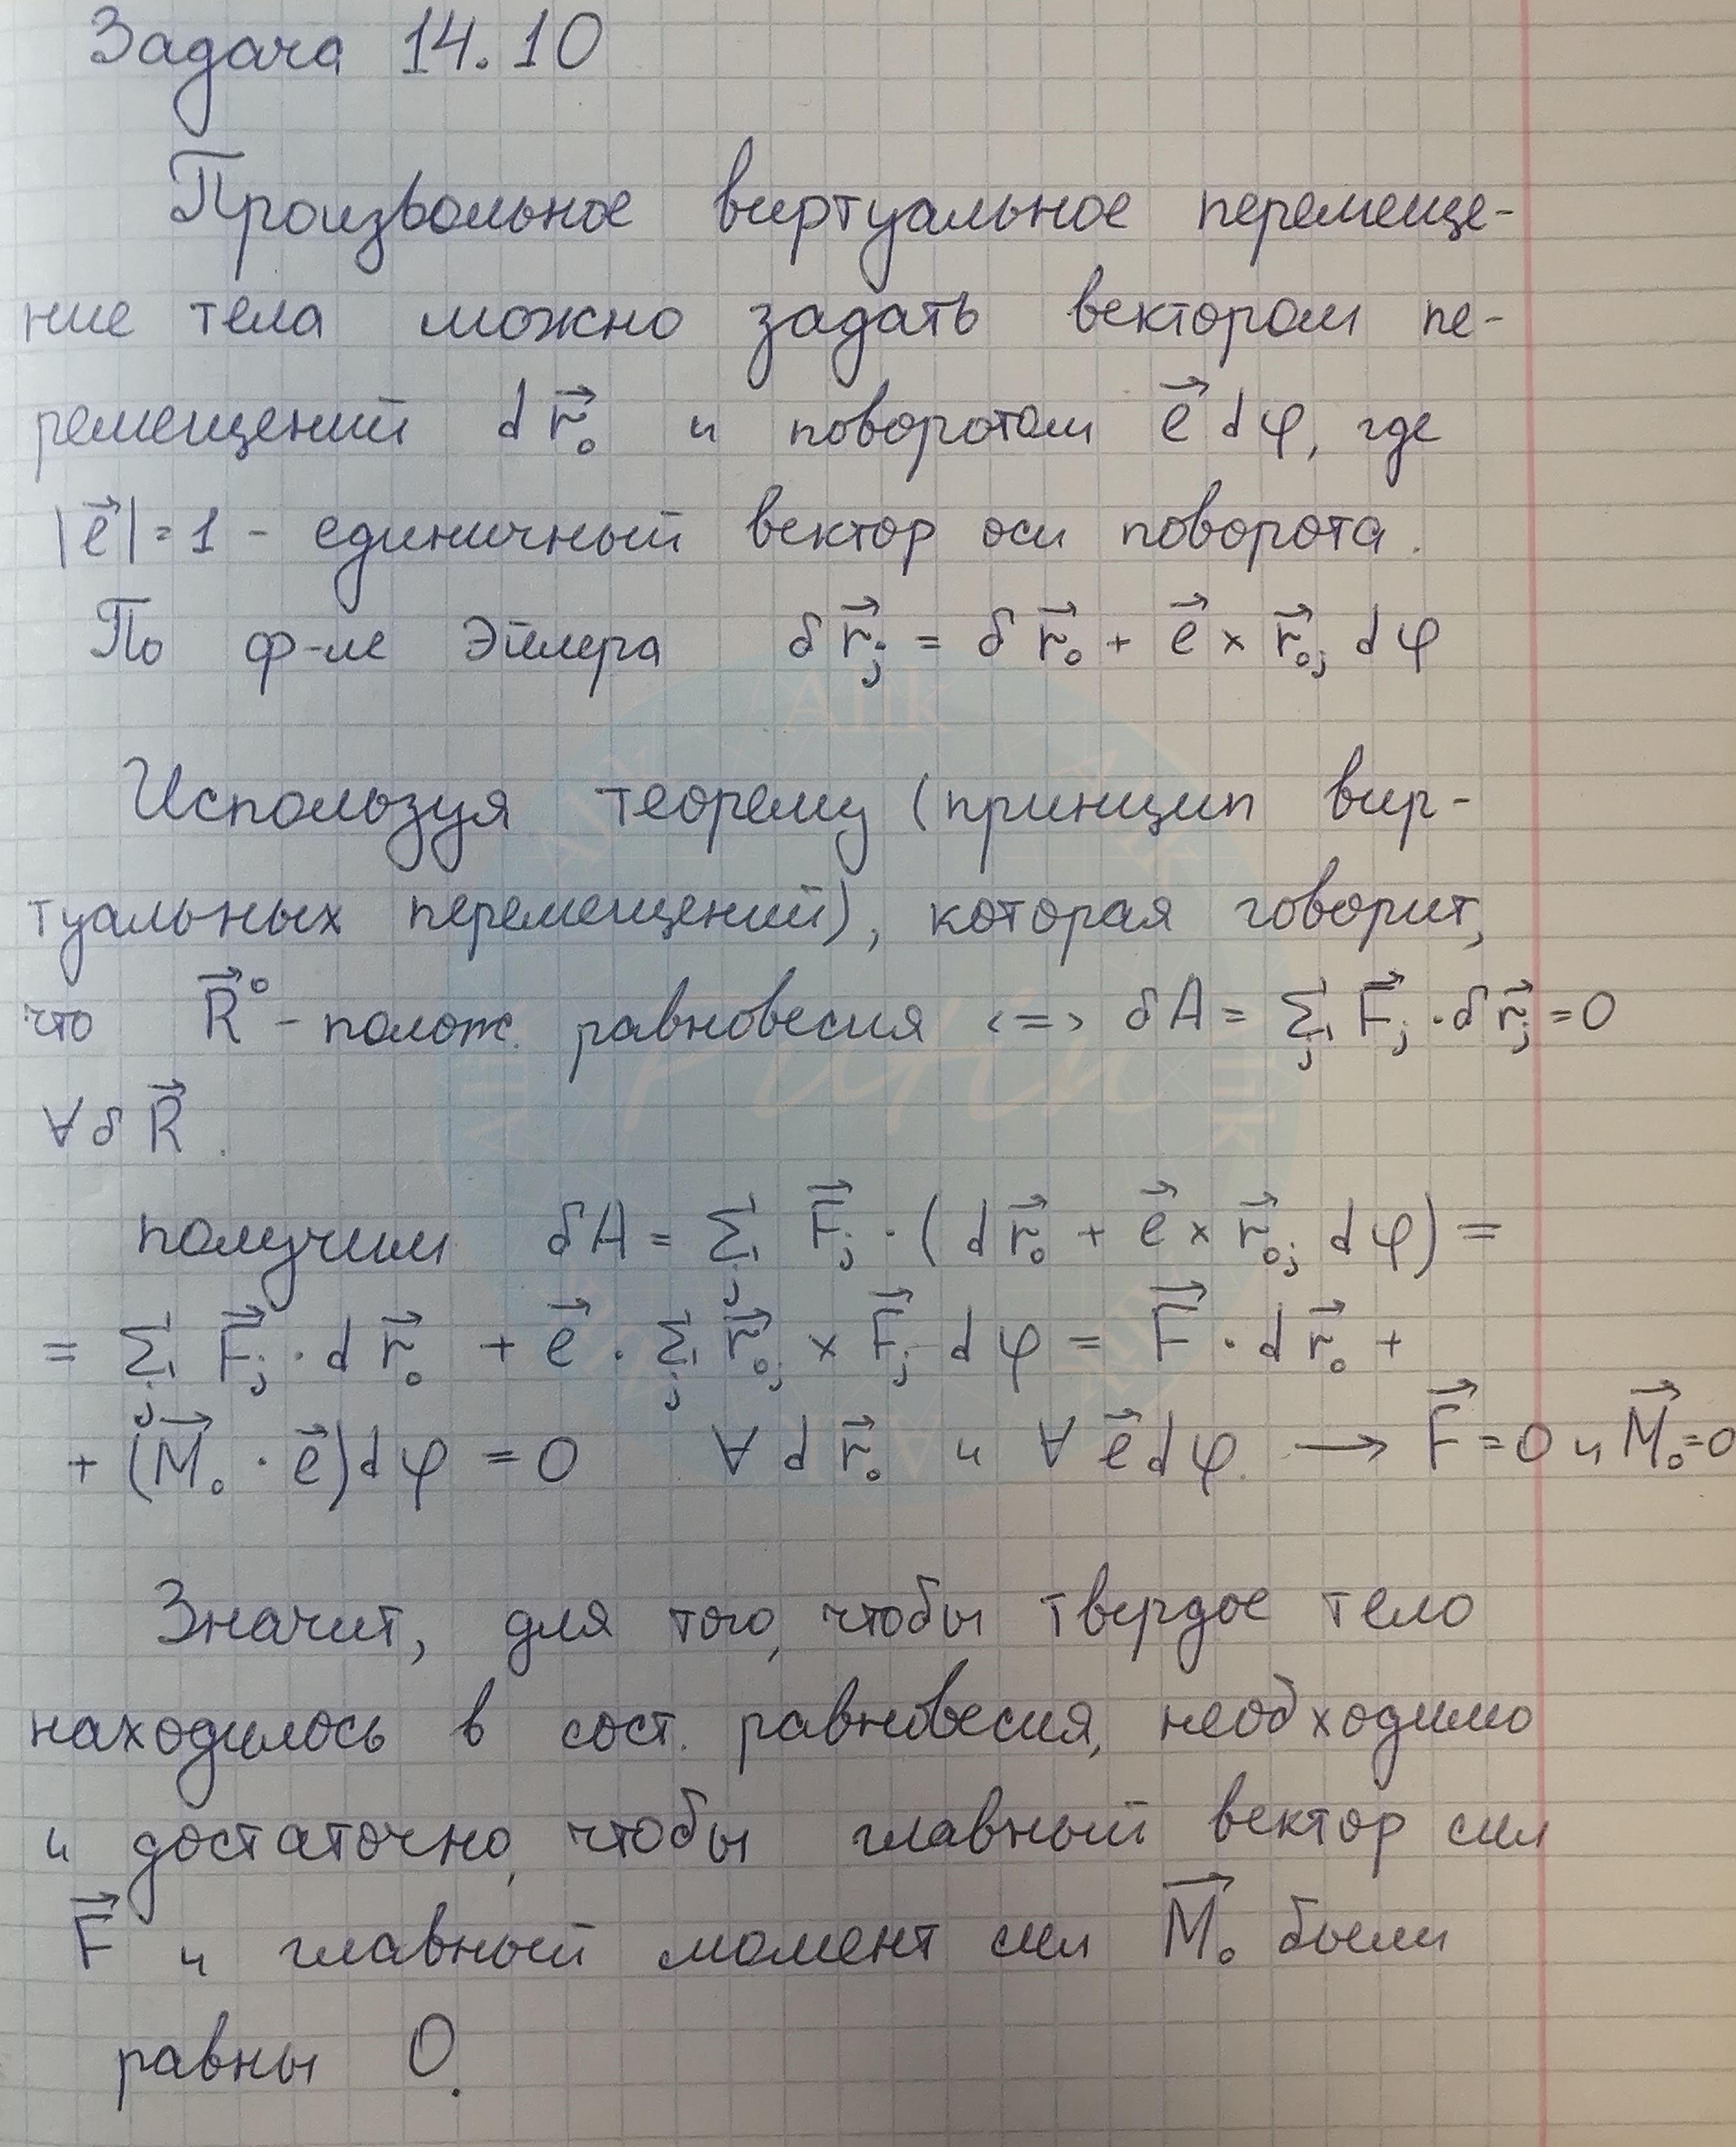 Задача 14.10
Произвольное виртуальное перемеще-
ние тела можно задать вектором пе-
ремещений d r⃗₀ и поворотом e⃗ dφ, где
|e⃗| = 1 - единичный вектор оси поворота.
По ф-ле Эйлера δr⃗ⱼ = δr⃗₀ + e⃗ × r⃗₀ⱼ dφ
Используя теорему (принцип вир-
туальных перемещений), которая говорит,
что R⃗° - полож. равновесия <=> δA = Σⱼ F⃗ⱼ · δr⃗ⱼ = 0
∀ δR⃗.
получим δA = Σⱼ F⃗ⱼ · (d r⃗₀ + e⃗ × r⃗₀ⱼ dφ) =
= Σⱼ F⃗ⱼ · d r⃗₀ + e⃗ · Σⱼ r⃗₀ⱼ × F⃗ⱼ dφ = F⃗ · d r⃗₀ +
+ (M⃗₀ · e⃗) dφ = 0 ∀ d r⃗₀ и ∀ e⃗ dφ. → F⃗ = 0 и M⃗₀ = 0
Значит, для того, чтобы твердое тело
находилось в сост. равновесия, необходимо
и достаточно, чтобы главный вектор сил
F⃗ и главный момент сил M⃗₀ были
равны 0.